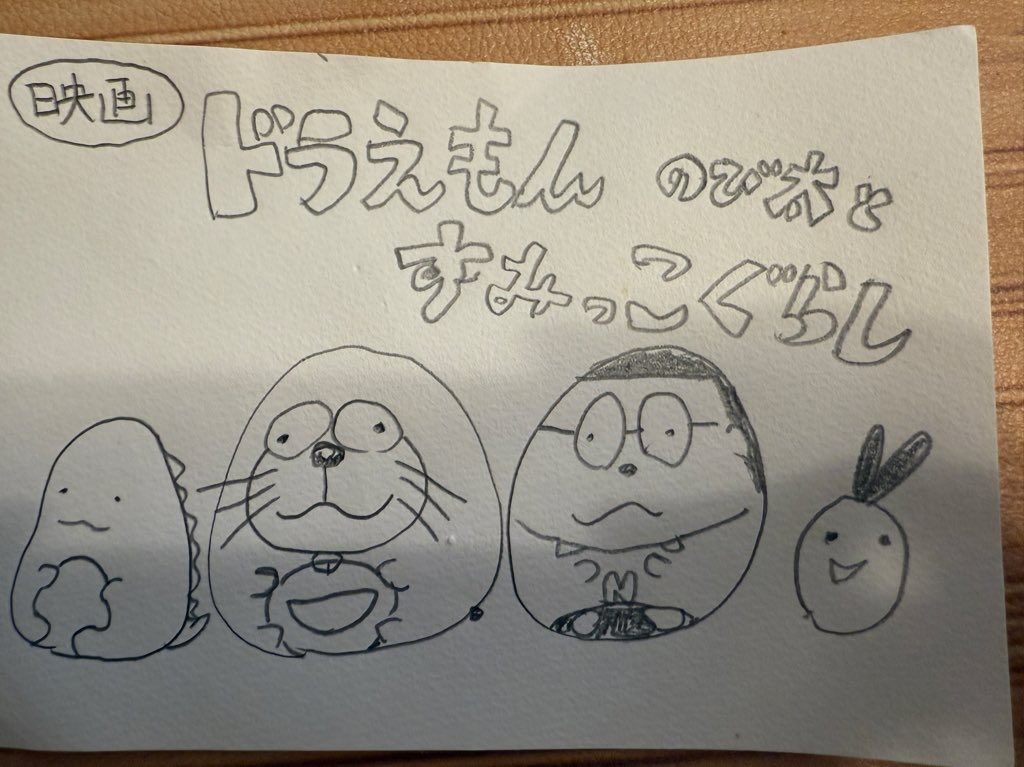 映画
ドラえもん のび太と
すみっこぐらし
N